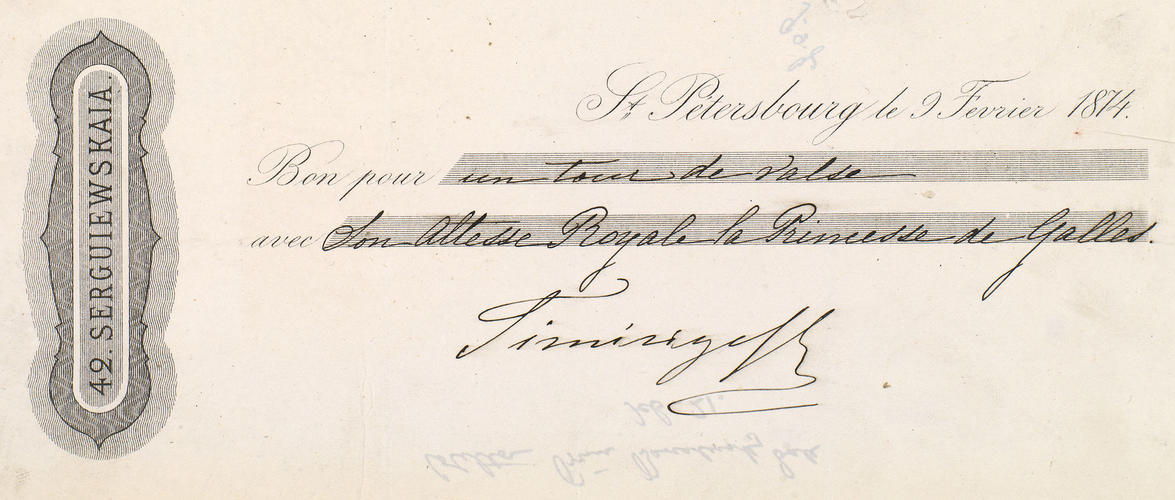 42. SERGUIEWSKAIA.
St. Pétersbourg le 9 Fevrier 1874.
Bon pour un tour de valse
avec Son Altesse Royale la Princesse de Galles.